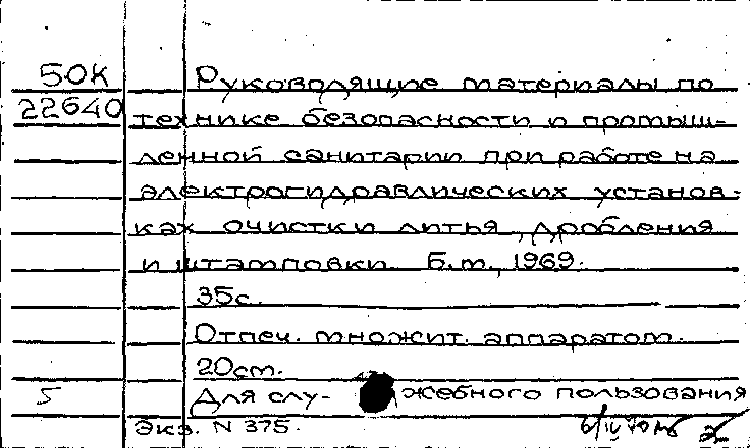 50К Руководящие материалы по
22640 технике безопасности и промыш-
ленной санитарии при работе на
электрогидравлических установ-
ках очистки литья, дробления
и штамповки. Б.м., 1969.
35с.
Отпеч. множит. аппаратом.
20см.
5 Для слу- жебного пользования
Экз. N 375.